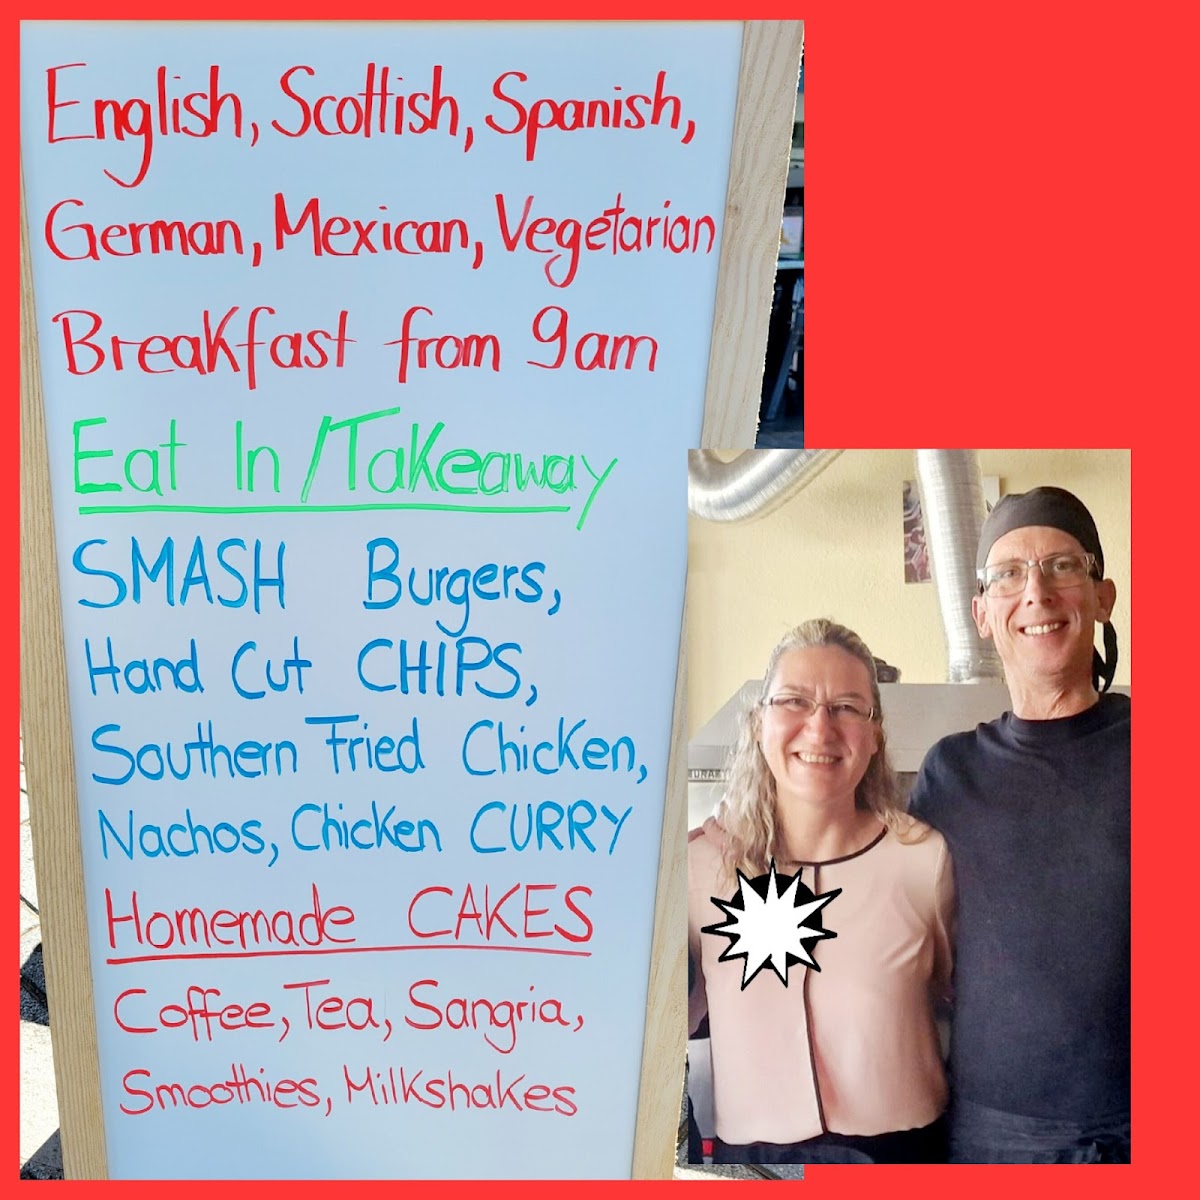 English, Scottish, Spanish,
German, Mexican, Vegetarian
Breakfast from 9am
Eat In/Takeaway
SMASH Burgers,
Hand Cut CHIPS,
Southern Fried Chicken,
Nachos, Chicken CURRY
Homemade CAKES
Coffee, Tea, Sangria,
Smoothies, Milkshakes